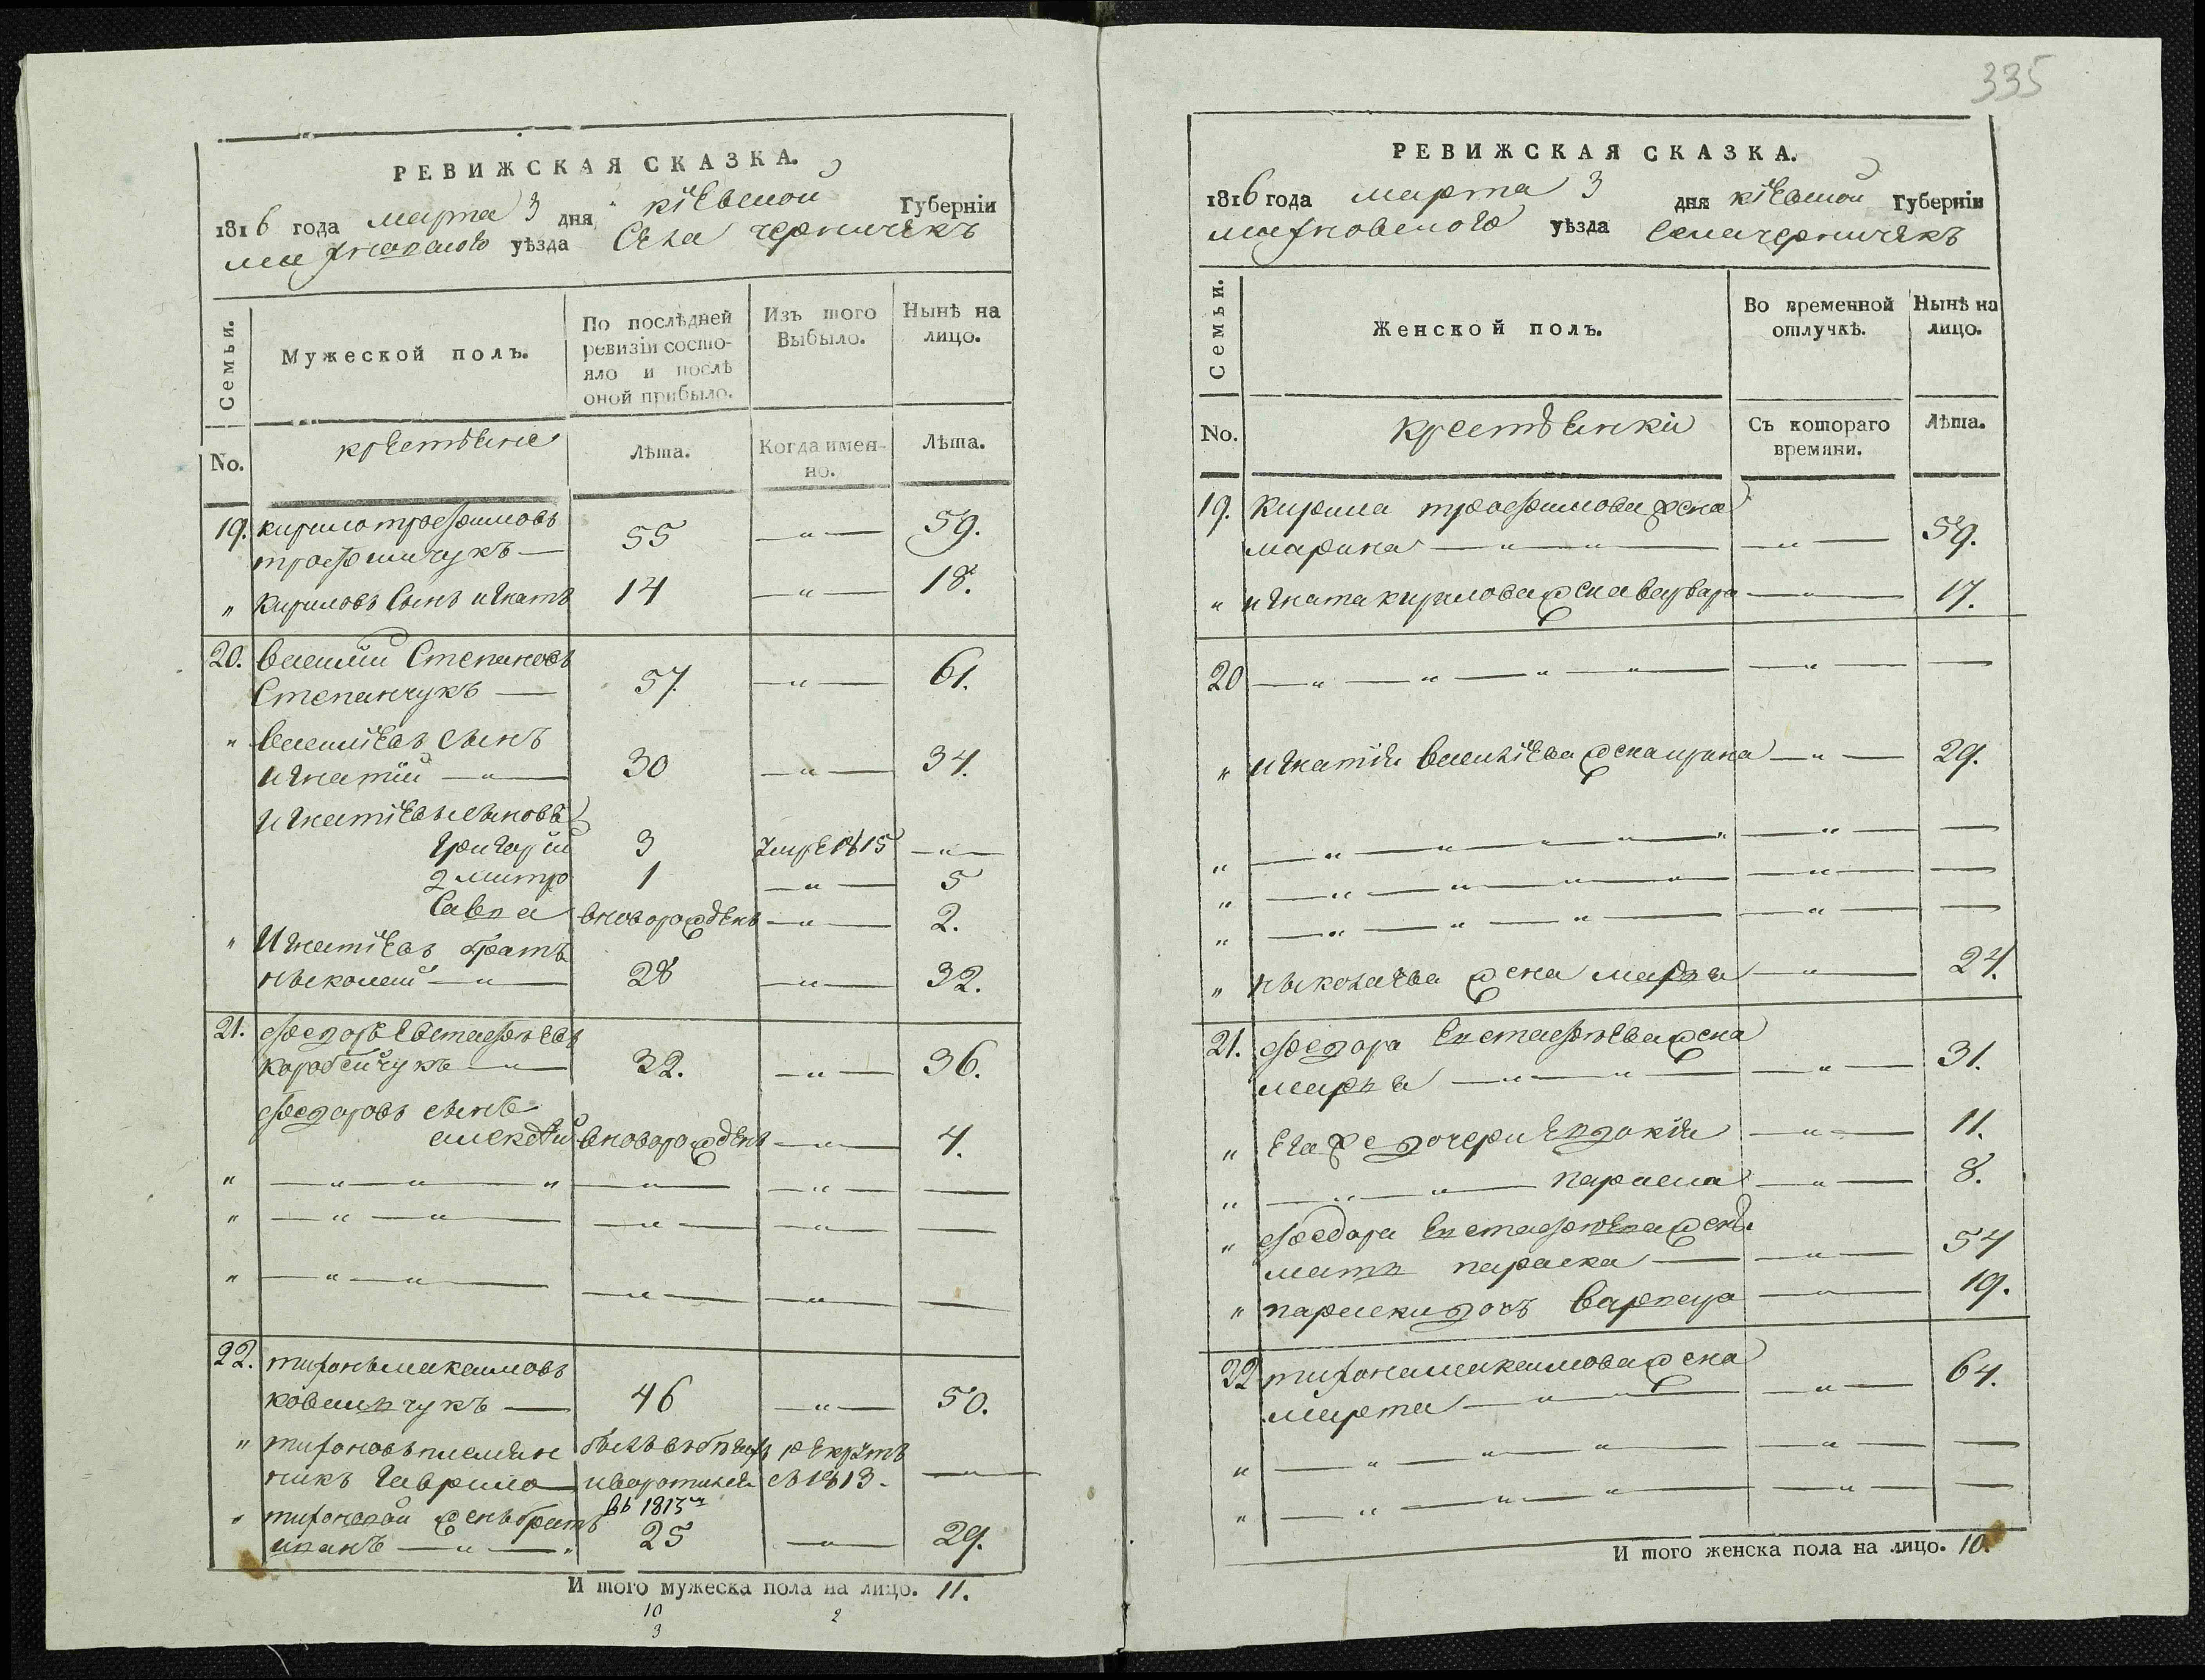 335
РЕВИЖСКАЯ СКАЗКА.
1816 года марта 3 дня кіевской Губерніи
махновского уѣзда Села черничекъ
Семьи. Мужеской полъ. По послѣдней ревизіи состояло и послѣ оной прибыло. Изъ того Выбыло. Нынѣ на лицо.
No. крестьяне Лѣта. Когда именно. Лѣта.
19. кирило трофимовъ
трофимчукъ — 55 — " — 59.
" Кириловъ Сынъ игнатъ 14 — " — 18.
20. василий Степановъ
Степанчукъ — 57. — " — 61.
" василіевъ сынъ
игнатий — " — 30 — " — 34.
игнатіевы сыновья
григорий 3 умре 1815 — " —
дмитро 1 — " — 5
Савва вноворожденъ — " — 2.
" Игнатіевъ братъ
николай — " — 28 — " — 32.
21. федоръ Евстафіевъ
коробейчукъ — " — 32. — " — 36.
федоровъ сынъ
алексѣй вноворожденъ — " — 4.
" — " — " — " — " — — " — —
" — " — " — — " — — " — —
" — " — " — — " — — " — —
22. тихонъ максимовъ
ковальчукъ — 46 — " — 50.
" тихоновъ племян
никъ гаврило и воротился в 1813. —
въ 1815
" тихоновой женъ братъ
иванъ — " — " 25 — " — 29.
И того мужеска пола на лицо. 11.
10 2
3
РЕВИЖСКАЯ СКАЗКА.
1816 года марта 3 дня кіевской Губерніи
махновского уѣзда Села черничекъ
Семьи. Женской полъ. Во временной отлучкѣ. Нынѣ на лицо.
No. крестьянки Съ котораго времяни. Лѣта.
19. Кирила трофимова жена
марина — " — " — — " — 59.
" игната кирилова жена варвара — " — 17.
20 — " — " — " — " — — " — —
" игнатія василіева жена ирина — " — 29.
" — " — " — " — " — " — —
" — " — " — " — " — " — —
" — " — " — " — — " — —
" николаева жена марья — " — 24.
21. федора Евстафіева жена
марья — " — " — — " — 31.
" Егожъ дочери Евдокія — " — 11.
" — " — " — параска — " — 8.
" федора Евстафіева жены
мать параска — — " — 54
" параски дочь варвара — " — 19.
22 тихона максимова жена
марта — " — " — — " — 64.
" — " — " — " — — " — —
" — " — " — " — — " — —
И того женска пола на лицо. 10.